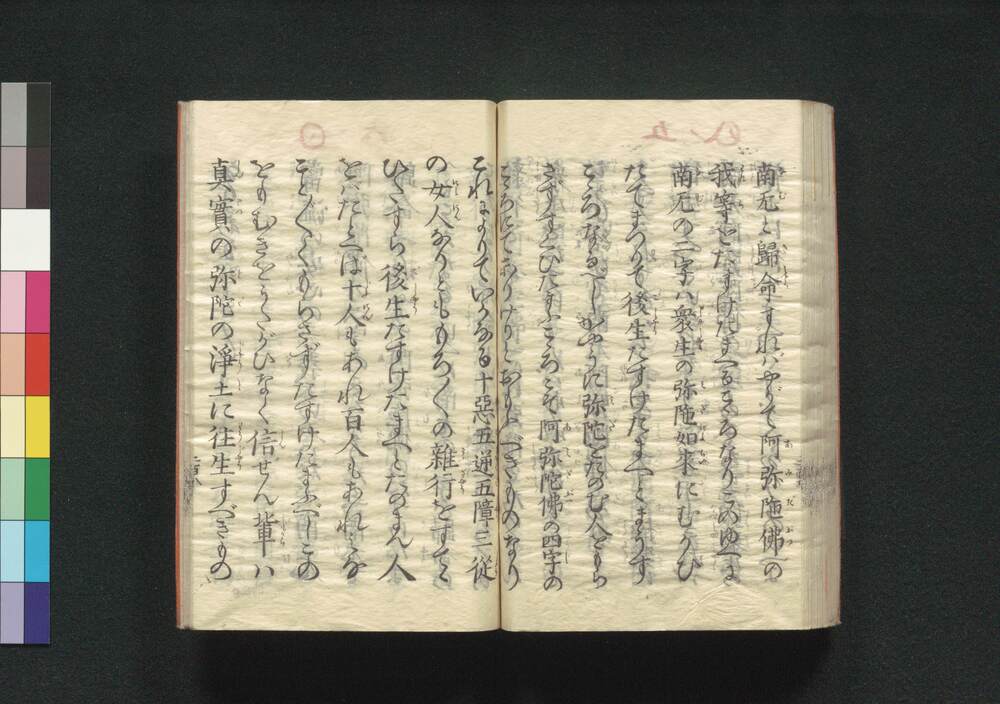 南无と歸命すればやがて阿弥陁佛の
我等をたすけたまへるこゝろなりこのゆへに
南无の二字ハ衆生の弥陁如来にむかひ
たてまつりて後生たすけたまへとまうす
こゝろなるべしかやうに弥陀をたのむ人をもら
さずすくひたまふこゝろこそ阿弥陀佛の四字の
こゝろにてありけりとおもふべきものなり
これによりていかなる十惡五逆五障三従
の女人なりとももろ〱の雜行をすてゝ
ひたすら後生たすけたまへとたのまん人
をバたとへば十人もあれ百人もあれみな
こと〲くもらさずたすけたまふべしこの
をもむきをうたがひなく信せん輩ハ
真實の弥陀の淨土に往生すべきもの